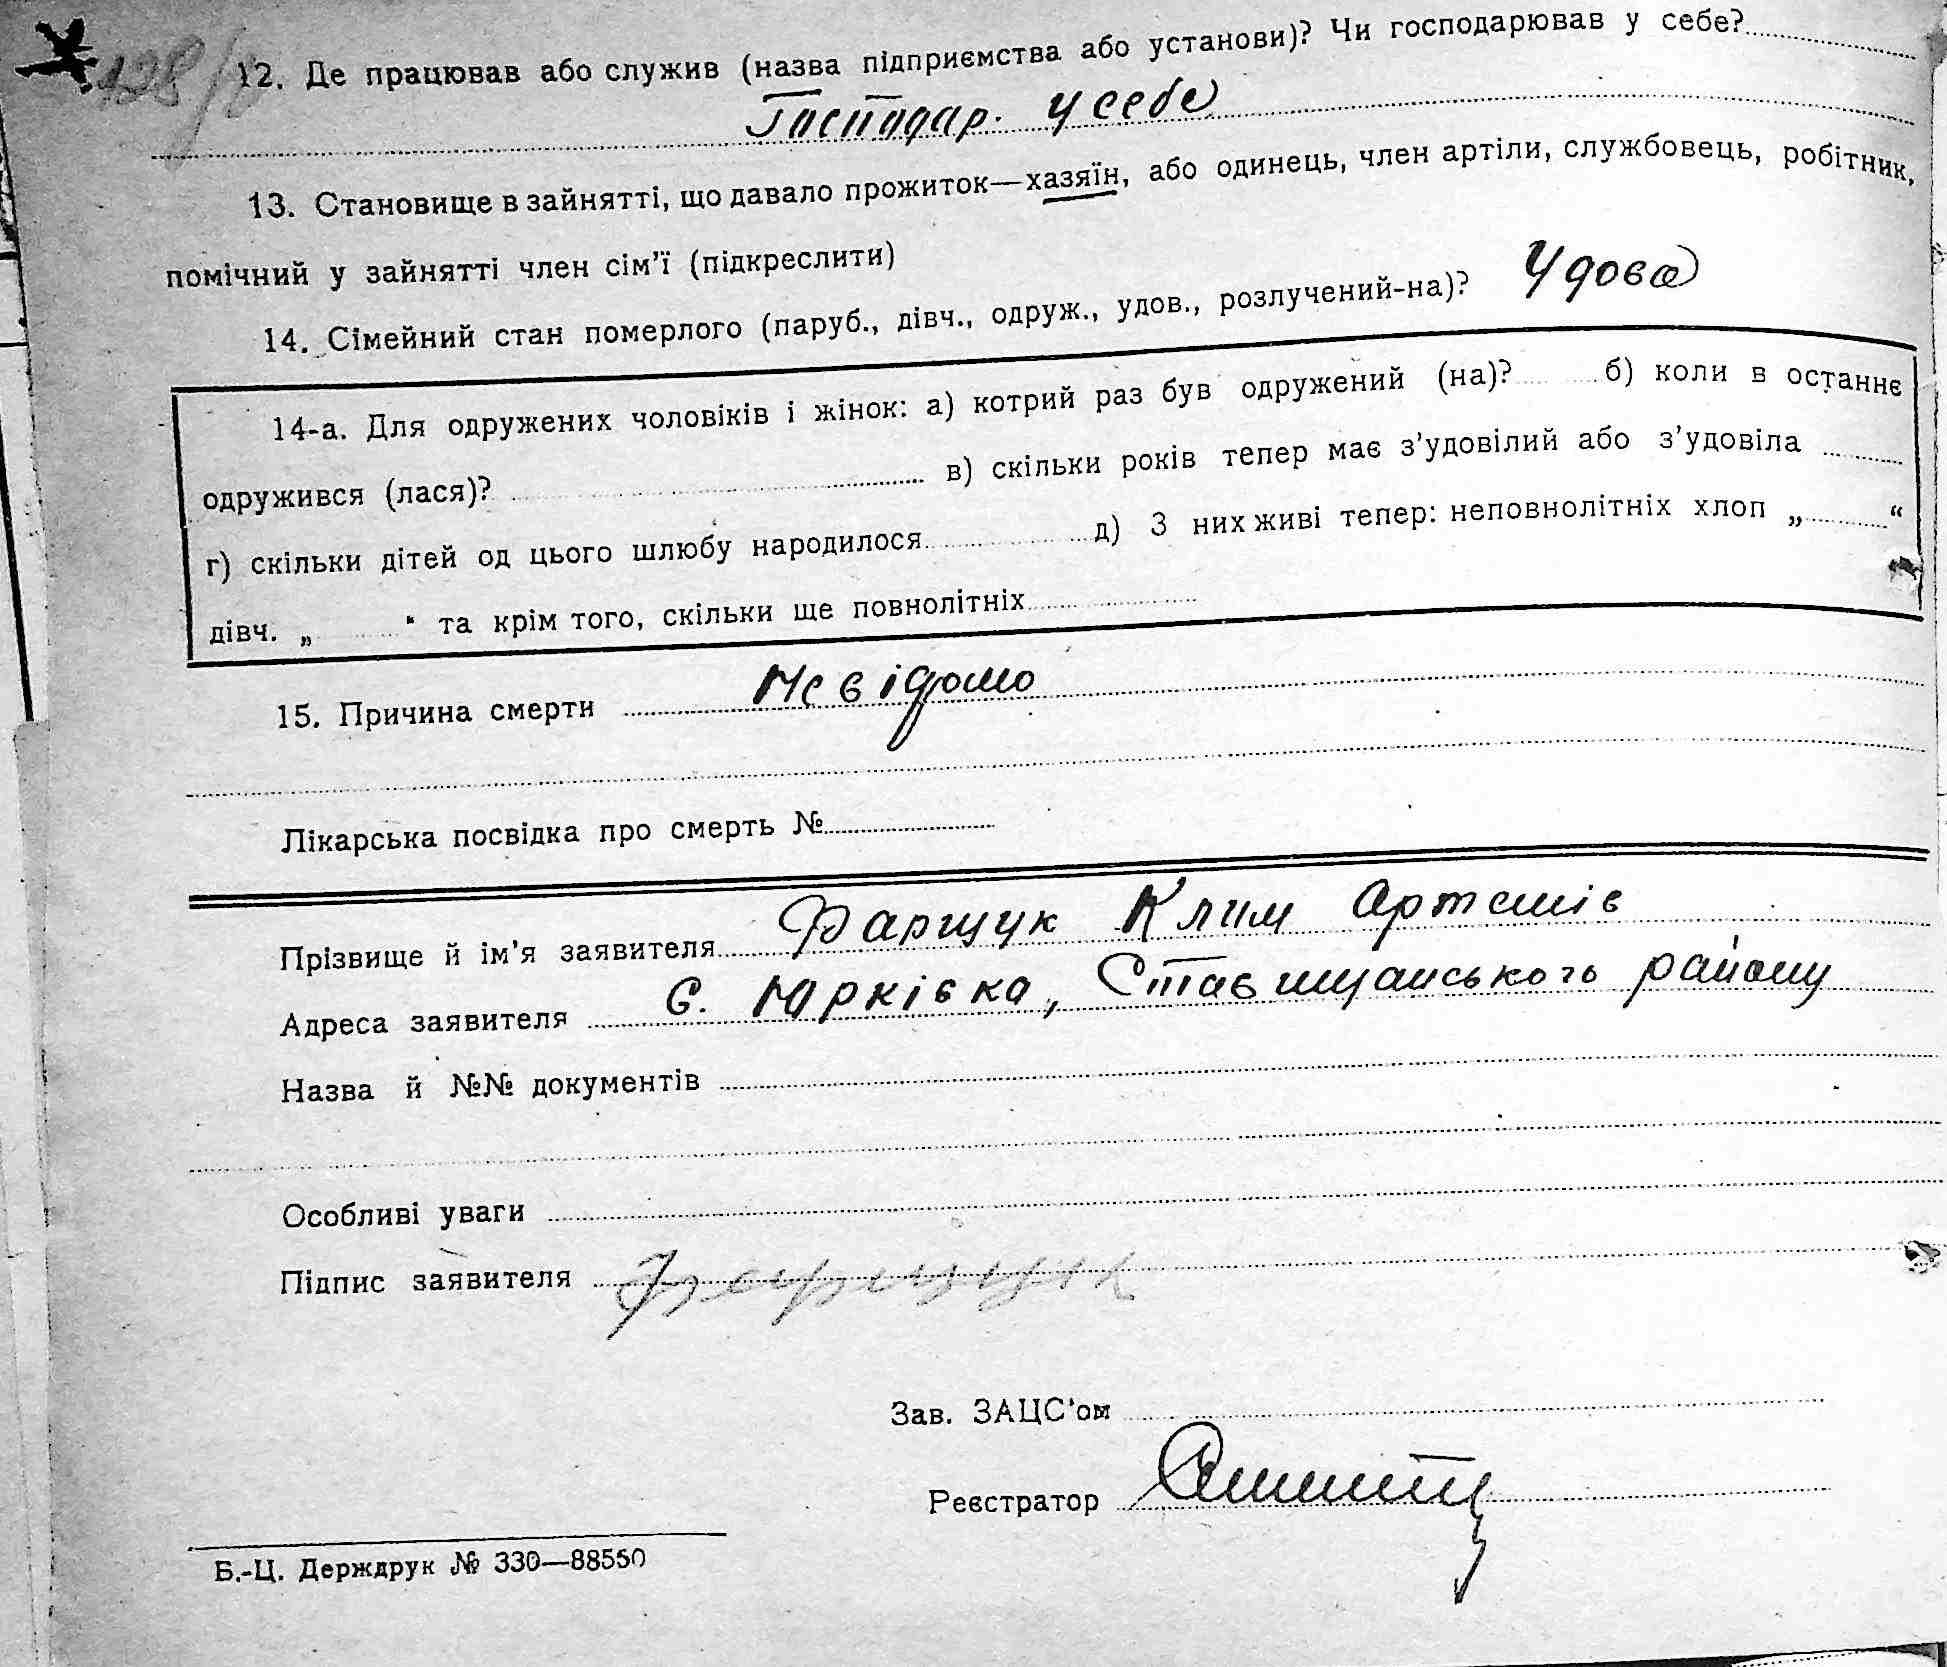 128/
12. Де працював або служив (назва підприємства або установи)? Чи господарював у себе?
Господар. у себе
13. Становище в зайнятті, що давало прожиток—хазяїн, або одинець, член артіли, службовець, робітник,
помічний у зайнятті член сім'ї (підкреслити)
14. Сімейний стан померлого (паруб., дівч., одруж., удов., розлучений-на)? Удова
14-а. Для одружених чоловіків і жінок: а) котрий раз був одружений (на)? б) коли в останнє
одружився (лася)? в) скільки років тепер має з'удовілий або з'удовіла
г) скільки дітей од цього шлюбу народилося д) З них живі тепер: неповнолітніх хлоп „ “
дівч. „ “ та крім того, скільки ще повнолітніх
15. Причина смерти Невідомо
Лікарська посвідка про смерть №
Прізвище й ім'я заявителя Фарщук Клим Артемів
Адреса заявителя с. Юрківка, Ставищанського району
Назва й №№ документів
Особливі уваги
Підпис заявителя Фарщук
Зав. ЗАЦС'ом
Реєстратор
Б.-Ц. Держдрук № 330—88550